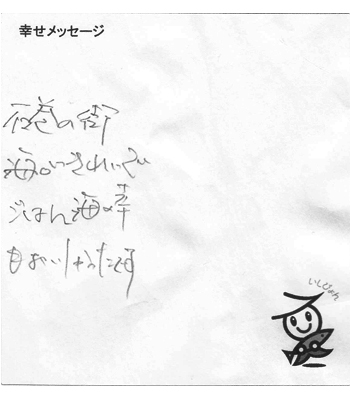 幸せメッセージ
石巻の街
海がきれいでい
ごはん海の幸
もおいしかったです
いしぴょん